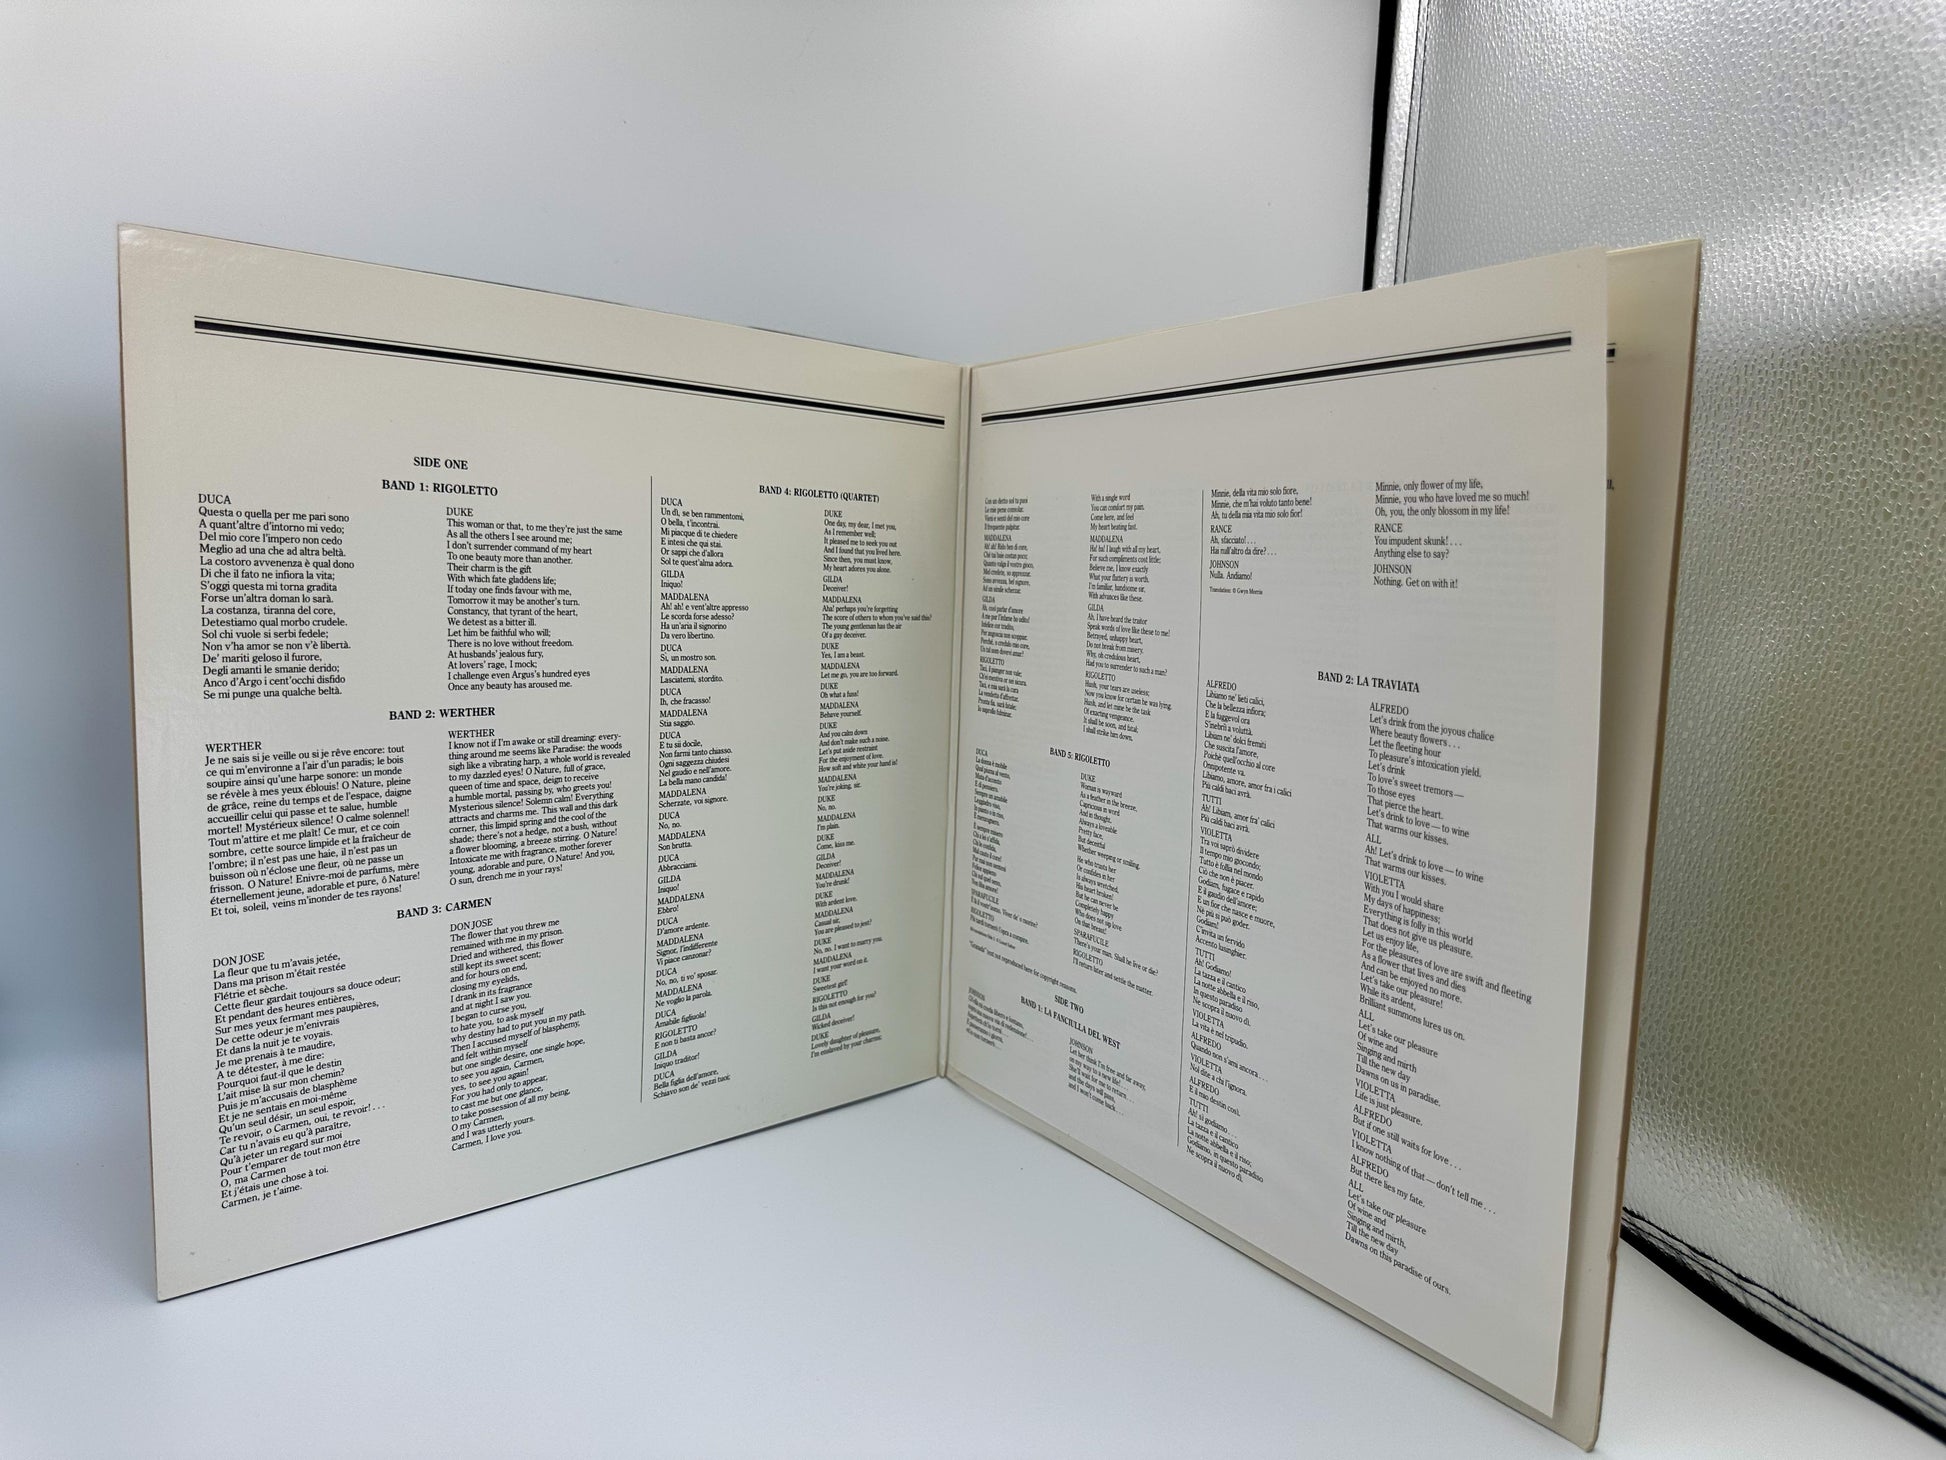 SIDE ONE
BAND 1: RIGOLETTO
DUCA
Questa o quella per me pari sono
A quant'altre d'intorno mi vedo;
Del mio core l'impero non cedo
Meglio ad una che ad altra beltà.
La costoro avvenenza è qual dono
Di che il fato ne infiora la vita;
S'oggi questa mi torna gradita
Forse un'altra doman lo sarà.
La costanza, tiranna del core,
Detestiamo qual morbo crudele.
Sol chi vuole si serbi fedele;
Non v'ha amor se non v'è libertà.
De' mariti geloso il furore,
Degli amanti le smanie derido;
Anco d'Argo i cent'occhi disfido
Se mi punge una qualche beltà.
DUKE
This woman or that, to me they're just the same
As all the others I see around me;
I don't surrender command of my heart
To one beauty more than another.
Their charm is the gift
With which fate gladdens life;
If today one finds favour with me,
Tomorrow it may be another's turn.
Constancy, that tyrant of the heart,
We detest as a bitter ill.
Let him be faithful who will;
There is no love without freedom.
At husbands' jealous fury,
At lovers' rage, I mock;
I challenge even Argus's hundred eyes
Once any beauty has aroused me.
BAND 2: WERTHER
WERTHER
Je ne sais si je veille ou si je rêve encore: tout
ce qui m'environne a l'air d'un paradis; le bois
soupire ainsi qu'une harpe sonore: un monde
se révèle à mes yeux éblouis! O Nature, pleine
de grâce, reine du temps et de l'espace, daigne
accueillir celui qui passe et te salue, humble
mortel! Mystérieux silence! O calme solennel!
Tout m'attire et me plaît! Ce mur, et ce coin
sombre, cette source limpide et la fraîcheur de
l'ombre; il n'est pas une haie, il n'est pas un
buisson où n'éclose une fleur, où ne passe un
frisson. O Nature! Enivre-moi de parfums, mère
éternellement jeune, adorable et pure, ô Nature!
Et toi, soleil, veins m'inonder de tes rayons!
WERTHER
I know not if I'm awake or still dreaming: every-
thing around me seems like Paradise: the woods
sigh like a vibrating harp, a whole world is revealed
to my dazzled eyes! O Nature, full of grace,
queen of time and space, deign to receive
a humble mortal, passing by, who greets you!
Mysterious silence! Solemn calm! Everything
attracts and charms me. This wall and this dark
corner, this limpid spring and the cool of the
shade; there's not a hedge, not a bush, without
a flower blooming, a breeze stirring. O Nature!
Intoxicate me with fragrance, mother forever
young, adorable and pure, O Nature! And you,
O sun, drench me in your rays!
BAND 3: CARMEN
DON JOSE
La fleur que tu m'avais jetée,
Dans ma prison m'était restée
Flétrie et sèche.
Cette fleur gardait toujours sa douce odeur;
Et pendant des heures entières,
Sur mes yeux fermant mes paupières,
De cette odeur je m'enivrais
Et dans la nuit je te voyais.
Je me prenais à te maudire,
A te détester, à me dire:
Pourquoi faut-il que le destin
L'ait mise là sur mon chemin?
Puis je m'accusais de blasphème
Et je ne sentais en moi-même
Qu'un seul désir, un seul espoir,
Te revoir, o Carmen, oui, te revoir! . . .
Car tu n'avais eu qu'à paraître,
Qu'à jeter un regard sur moi
Pour t'emparer de tout mon être
O, ma Carmen
Et j'étais une chose à toi.
Carmen, je t'aime.
DON JOSE
The flower that you threw me
remained with me in my prison.
Dried and withered, this flower
still kept its sweet scent;
and for hours on end,
closing my eyelids,
I drank in its fragrance
and at night I saw you.
I began to curse you,
to hate you, to ask myself
why destiny had to put you in my path.
Then I accused myself of blasphemy,
and felt within myself
but one single desire, one single hope,
to see you again, Carmen,
yes, to see you again!
For you had only to appear,
to cast me but one glance,
to take possession of all my being,
O my Carmen,
and I was utterly yours.
Carmen, I love you.
BAND 4: RIGOLETTO (QUARTET)
DUCA
Un dì, se ben rammentomi,
O bella, t'incontrai.
Mi piacque di te chiedere
E intesi che qui stai.
Or sappi che d'allora
Sol te quest'alma adora.
GILDA
Iniquo!
MADDALENA
Ah! ah! e vent'altre appresso
Le scorda forse adesso?
Ha un'aria il signorino
Da vero libertino.
DUCA
Sì, un mostro son.
MADDALENA
Lasciatemi, stordito.
DUCA
Ih, che fracasso!
MADDALENA
Stia saggio.
DUCA
E tu sii docile,
Non farmi tanto chiasso.
Ogni saggezza chiudesi
Nel gaudio e nell'amore.
La bella mano candida!
MADDALENA
Scherzate, voi signore.
DUCA
No, no.
MADDALENA
Son brutta.
DUCA
Abbracciami.
GILDA
Iniquo!
MADDALENA
Ebbro!
DUCA
D'amore ardente.
MADDALENA
Signor, l'indifferente
Vi piace canzonar?
DUCA
No, no, ti vo' sposar.
MADDALENA
Ne voglio la parola.
DUCA
Amabile figliuola!
RIGOLETTO
E non ti basta ancor?
GILDA
Iniquo traditor!
DUCA
Bella figlia dell'amore,
Schiavo son de' vezzi tuoi;
DUKE
One day, my dear, I met you,
As I remember well;
It pleased me to seek you out
And I found that you lived here.
Since then, you must know,
My heart adores you alone.
GILDA
Deceiver!
MADDALENA
Aha! perhaps you're forgetting
The score of others to whom you've said this?
The young gentleman has the air
Of a gay deceiver.
DUKE
Yes, I am a beast.
MADDALENA
Let me go, you are too forward.
DUKE
Oh what a fuss!
MADDALENA
Behave yourself.
DUKE
And you calm down
And don't make such a noise.
Let's put aside restraint
For the enjoyment of love.
How soft and white your hand is!
MADDALENA
You're joking, sir.
DUKE
No, no.
MADDALENA
I'm plain.
DUKE
Come, kiss me.
GILDA
Deceiver!
MADDALENA
You're drunk!
DUKE
With ardent love.
MADDALENA
Casual sir,
You are pleased to jest?
DUKE
No, no, I want to marry you.
MADDALENA
I want your word on it.
DUKE
Sweetest girl!
RIGOLETTO
Is this not enough for you?
GILDA
Wicked deceiver!
DUKE
Lovely daughter of pleasure,
I'm enslaved by your charms;
Con un detto sol tu puoi
Le mie pene consolar.
Vieni e senti del mio core
Il frequente palpitar.
MADDALENA
Ah! ah! Rido ben di core,
Chè tai baie costan poco;
Quanto valga il vostro gioco,
Mel credete, so apprezzar.
Sono avvezza, bel signore,
Ad un simile scherzar.
GILDA
Ah, così parlar d'amore
A me pur l'infame ho udito!
Infelice cor tradito,
Per angoscia non scoppiar.
Perchè, o credulo mio core,
Un tal uom dovevi amar?
RIGOLETTO
Taci, il pianger non vale;
Ch'ei mentiva or sei sicura.
Taci, e mia sarà la cura
La vendetta d'affrettar.
Pronta fia, sarà fatale;
Io saprollo fulminar.
With a single word
You can comfort my pain.
Come here, and feel
My heart beating fast.
MADDALENA
Ha! ha! I laugh with all my heart,
For such compliments cost little;
Believe me, I know exactly
What your flattery is worth.
I'm familiar, handsome sir,
With advances like these.
GILDA
Ah, I have heard the traitor
Speak words of love like these to me!
Betrayed, unhappy heart,
Do not break from misery.
Why, oh credulous heart,
Had you to surrender to such a man?
RIGOLETTO
Hush, your tears are useless;
Now you know for certain he was lying.
Hush, and let mine be the task
Of exacting vengeance.
It shall be soon, and fatal;
I shall strike him down.
BAND 5: RIGOLETTO
DUCA
La donna è mobile
Qual piuma al vento,
Muta d'accento
E di pensiero.
Sempre un amabile
Leggiadro viso,
In pianto o in riso,
È menzognero.
È sempre misero
Chi a lei s'affida,
Chi le confida,
Mal cauto il core!
Pur mai non sentesi
Felice appieno
Chi sul quel seno,
Non liba amore!
SPARAFUCILE
È là il vostr'uomo. Viver de' o morire?
RIGOLETTO
Più tardi tornerò l'opra a compire.
DUKE
Woman is wayward
As a feather in the breeze,
Capricious in word
And in thought.
Always a loveable
Pretty face,
But deceitful
Whether weeping or smiling.
He who trusts in her
Or confides in her
Is always wretched,
His heart broken!
But he can never be
Completely happy
Who does not sip love
On that breast!
SPARAFUCILE
There's your man. Shall he live or die?
RIGOLETTO
I'll return later and settle the matter.
"Granada" text not reproduced here for copyright reasons.
SIDE TWO
BAND 1: LA FANCIULLA DEL WEST
JOHNSON
Ch'ella mi creda libero e lontano,
JOHNSON
Let her think I'm free and far away,
on my way to a new life! . . .
She'll wait for me to return . . .
and the days will pass,
and I won't come back . . .
Minnie, della vita mio solo fiore,
Minnie, che m'hai voluto tanto bene!
Ah, tu della mia vita mio solo fior!
RANCE
Ah, sfacciato! . . .
Hai null'altro da dire? . . .
JOHNSON
Nulla. Andiamo!
Translation: © Gwyn Morris
Minnie, only flower of my life,
Minnie, you who have loved me so much!
Oh, you, the only blossom in my life!
RANCE
You impudent skunk! . . .
Anything else to say?
JOHNSON
Nothing. Get on with it!
BAND 2: LA TRAVIATA
ALFREDO
Libiamo ne' lieti calici,
Che la bellezza infiora;
E la fuggevol ora
S'inebrii a voluttà.
Libiam ne' dolci fremiti
Che suscita l'amore,
Poichè quell'occhio al core
Onnipotente va.
Libiamo, amore, amor fra i calici
Più caldi baci avrà.
TUTTI
Ah! Libiam, amor fra' calici
Più caldi baci avrà.
VIOLETTA
Tra voi saprò dividere
Il tempo mio giocondo;
Tutto è follia nel mondo
Ciò che non è piacer.
Godiam, fugace e rapido
È il gaudio dell'amore;
È un fior che nasce e muore,
Nè più si può goder.
Godiam!
C'invita un fervido
Accento lusinghier.
TUTTI
Ah! Godiamo!
La tazza e il cantico
La notte abbella e il riso,
In questo paradiso
Ne scopra il nuovo dì.
VIOLETTA
La vita è nel tripudio.
ALFREDO
Quando non s'ami ancora . . .
VIOLETTA
Nol dite a chi l'ignora.
ALFREDO
È il mio destin così.
TUTTI
Ah! sì godiamo . . .
La tazza e il cantico
La notte abbella e il riso;
Godiamo, in questo paradiso
Ne scopra il nuovo dì.
ALFREDO
Let's drink from the joyous chalice
Where beauty flowers . . .
Let the fleeting hour
To pleasure's intoxication yield.
Let's drink
To love's sweet tremors—
To those eyes
That pierce the heart.
Let's drink to love — to wine
That warms our kisses.
ALL
Ah! Let's drink to love — to wine
That warms our kisses.
VIOLETTA
With you I would share
My days of happiness;
Everything is folly in this world
That does not give us pleasure.
Let us enjoy life,
For the pleasures of love are swift and fleeting
As a flower that lives and dies
And can be enjoyed no more.
Let's take our pleasure!
While its ardent,
Brilliant summons lures us on.
ALL
Let's take our pleasure
Of wine and
Singing and mirth
Till the new day
Dawns on us in paradise.
VIOLETTA
Life is just pleasure.
ALFREDO
But if one still waits for love . . .
VIOLETTA
I know nothing of that — don't tell me . . .
ALFREDO
But there lies my fate.
ALL
Let's take our pleasure
Of wine and
Singing and mirth,
Till the new day
Dawns on this paradise of ours.